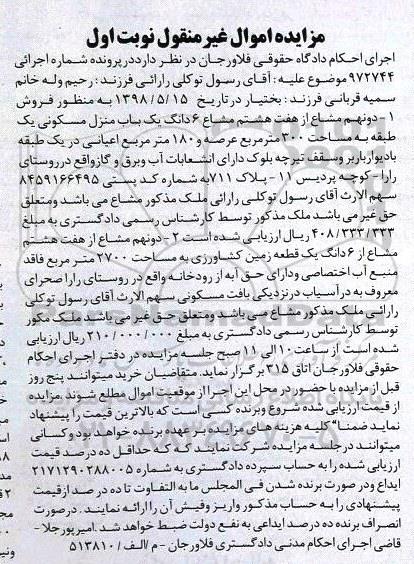 مزایده اموال غیر منقول نوبت اول
اجرای احکام دادگاه حقوقی فلاورجان در نظر دارددرپرونده شماره اجرائی
۹۷۲۷۴۴ موضوع علیه : آقای رسول توکلی رارائی فرزند : رحیم وله خانم
سمیه قربانی فرزند : بختیار در تاریخ ۱۳۹۸/۵/۱۵ به منظور فروش
۱-دونهم مشاع از هفت هشتم مشاع ۶دانگ یک باب منزل مسکونی یک
طبقه به مساحت ۳۰۰ مترمربع عرصه و۱۸۰ متر مربع اعیانی در یک طبقه
بادیوارباربر وسقف تیرچه بلوک دارای انشعابات آب وبرق و گازواقع درروستای
رارا - کوچه پردیس ۱۱ - پلاک ۷۱۱به شماره کد پستی ۸۴۵۹۱۶۶۴۹۵
سهم الارث آقای رسول توکلی رارائی ملک مذکور مشاع می باشد ومتعلق
حق غیر می باشد ملک مذکور توسط کارشناس رسمی دادگستری به مبلغ
۴۰۸/۳۳۳/۳۳۳ ریال ارزیابی شده است ۲-دونهم مشاع از هفت هشتم
مشاع از ۶دانگ یک قطعه زمین کشاورزی به مساحت ۲۷۰۰ متر مربع فاقد
منبع آب اختصاصی ودارای حق آبه از رودخانه واقع در روستای رارا صحرای
معروف به درآسیاب درنزدیکی بافت مسکونی سهم الارث آقای رسول توکلی
رارائی ملک مذکور مشاع می باشد ومتعلق حق غیر می باشد ملک مکور
توسط کارشناس رسمی دادگستری به مبلغ ۲۱۰/۰۰۰/۰۰۰ ریال ارزیابی
شده است از ساعت۱۰ الی ۱۱ صبح جلسه مزایده در دفتر اجرای احکام
حقوقی فلاورجان اتاق ۳۱۵ برگزار نماید. متقاضیان خرید میتوانند پنج روز
قبل از مزایده با حضور در محل این اجرا از موقعیت اموال مطلع شوند. مزایده
از قیمت ارزیابی شده شروع وبرنده کسی است که بالاترین قیمت را پیشنهاد
نماید ضمنا" کلیه هزینه های مزایده بر عهده برنده خواهد بود و کسانی
میتوانند درجلسه مزایده شرکت نمایند که که حداقل ده درصد قیمت
ارزیابی شده را به حساب سپرده دادگستری به شماره ۲۱۷۱۲۹۰۲۸۸۰۰۵
ایداع ودر صورت برنده شدن فی المجلس ما به التفاوت تا ده در صد ازقیمت
پیشنهادی را به حساب مذکور واریز وفیش آن را ارائه نمایند . درصورت
انصراف برنده ده درصد ایداعی به نفع دولت ضبط خواهد شد .امیرپور جلا -
قاضی اجرای احکام مدنی دادگستری فلاورجان - م /الف / ۵۱۳۸۱۰